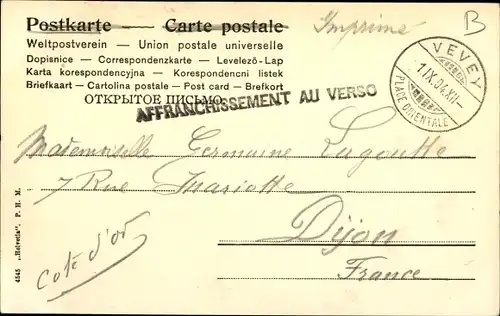 Postkarte — Carte postale
Imprimé
B
Weltpostverein — Union postale universelle
Dopisnice — Correspondenzkarte — Levelező-Lap
Karta korespondencyjna — Korespondencni listek
Briefkaart — Cartolina postale — Post card — Brefkort
ОТКРЫТОЕ ПИСЬМО
AFFRANCHISSEMENT AU VERSO
VEVEY
1 IX. 04. XII
PLACE ORIENTALE
Mademoiselle Germaine Lagoutte
7 Rue Mariotte
Dijon
Cote d'or
France
4545 „Helvetia", P. H. M.